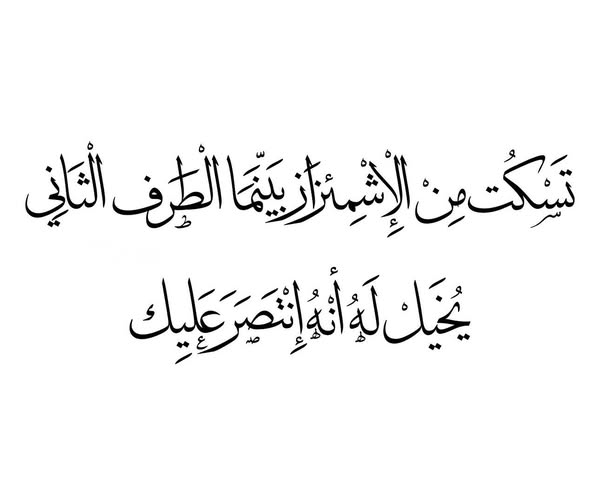 تَسْكُت مِنْ الْإِشْمِئزَاز بَيَنّمَا الْطَرَف الْثَانِي
يُخَيَلْ لَهُ أَنْهُ إِنْتْصَرَ عَلِيك